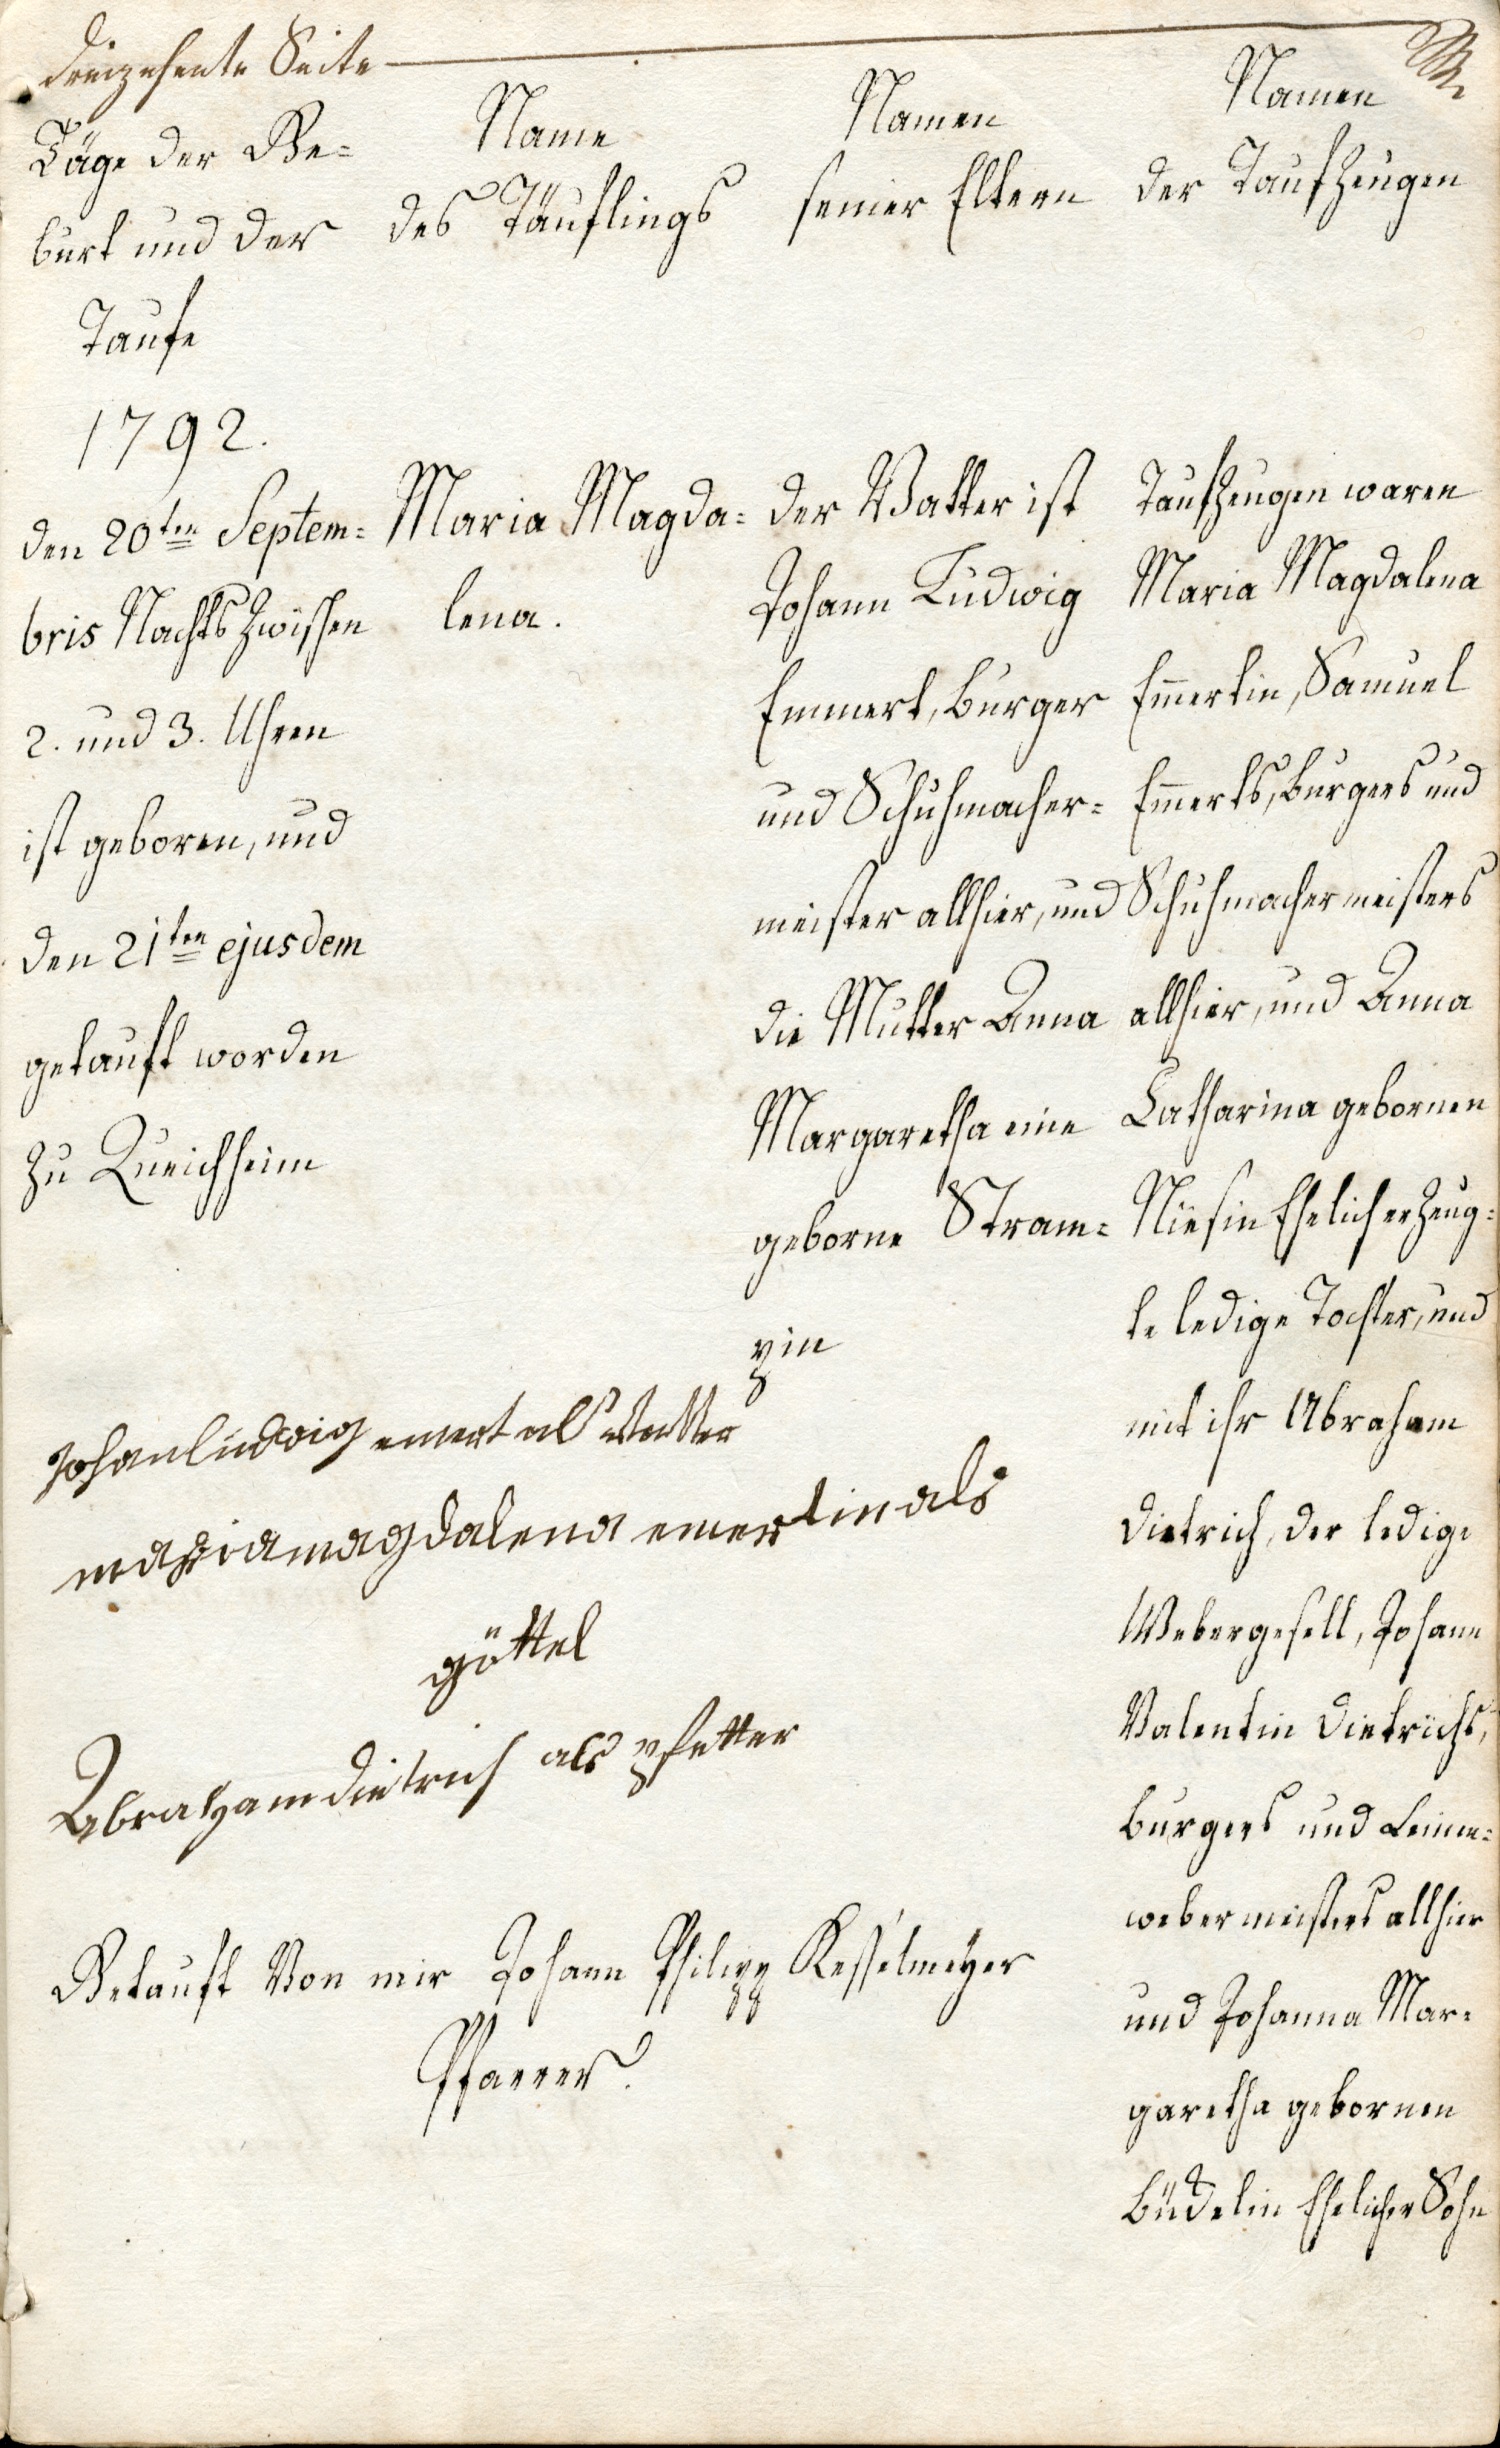 Dreizehente Seite
Täge der Ge=
burt und der
Taufe
Name
des Täuflings
Namen
seiner Eltern
Namen
der Taufzeugen
1792.
den 20ten Septem=
bris Nachts zwischen
2. und 3. Uhren
ist geboren, und
den 21ten ejusdem
getauft worden
zu Queichheim
Maria Magda=
lena.
der Vatter ist
Johann Ludwig
Emmert, burger
und Schuhmacher=
meister allhier, und
die Mutter Anna
Margaretha eine
geborne Stram=
pin
Taufzeugen waren
Maria Magdalena
Em̄ertin, Samuel
Em̄erts, burgers und
Schuhmachermeisters
allhier, und Anna
Catharina gebornen
Niesin Ehelich erzeug=
te ledige Tochter, und
mit ihr Abraham
Dietrich, der ledige
Webergesell, Johann
Valentin Dietrichs,
burgers und Leinen=
webermeisters allhier
und Johanna Mar=
garetha gebornen
büdelin Ehelicher Sohn
Johanludwig emert als vatter
mariamagdalena emertin als
göttel
Abraham dietrich als pfetter
Getauft Von mir Johann Philipp Kesselmeyer
Pfarrer.